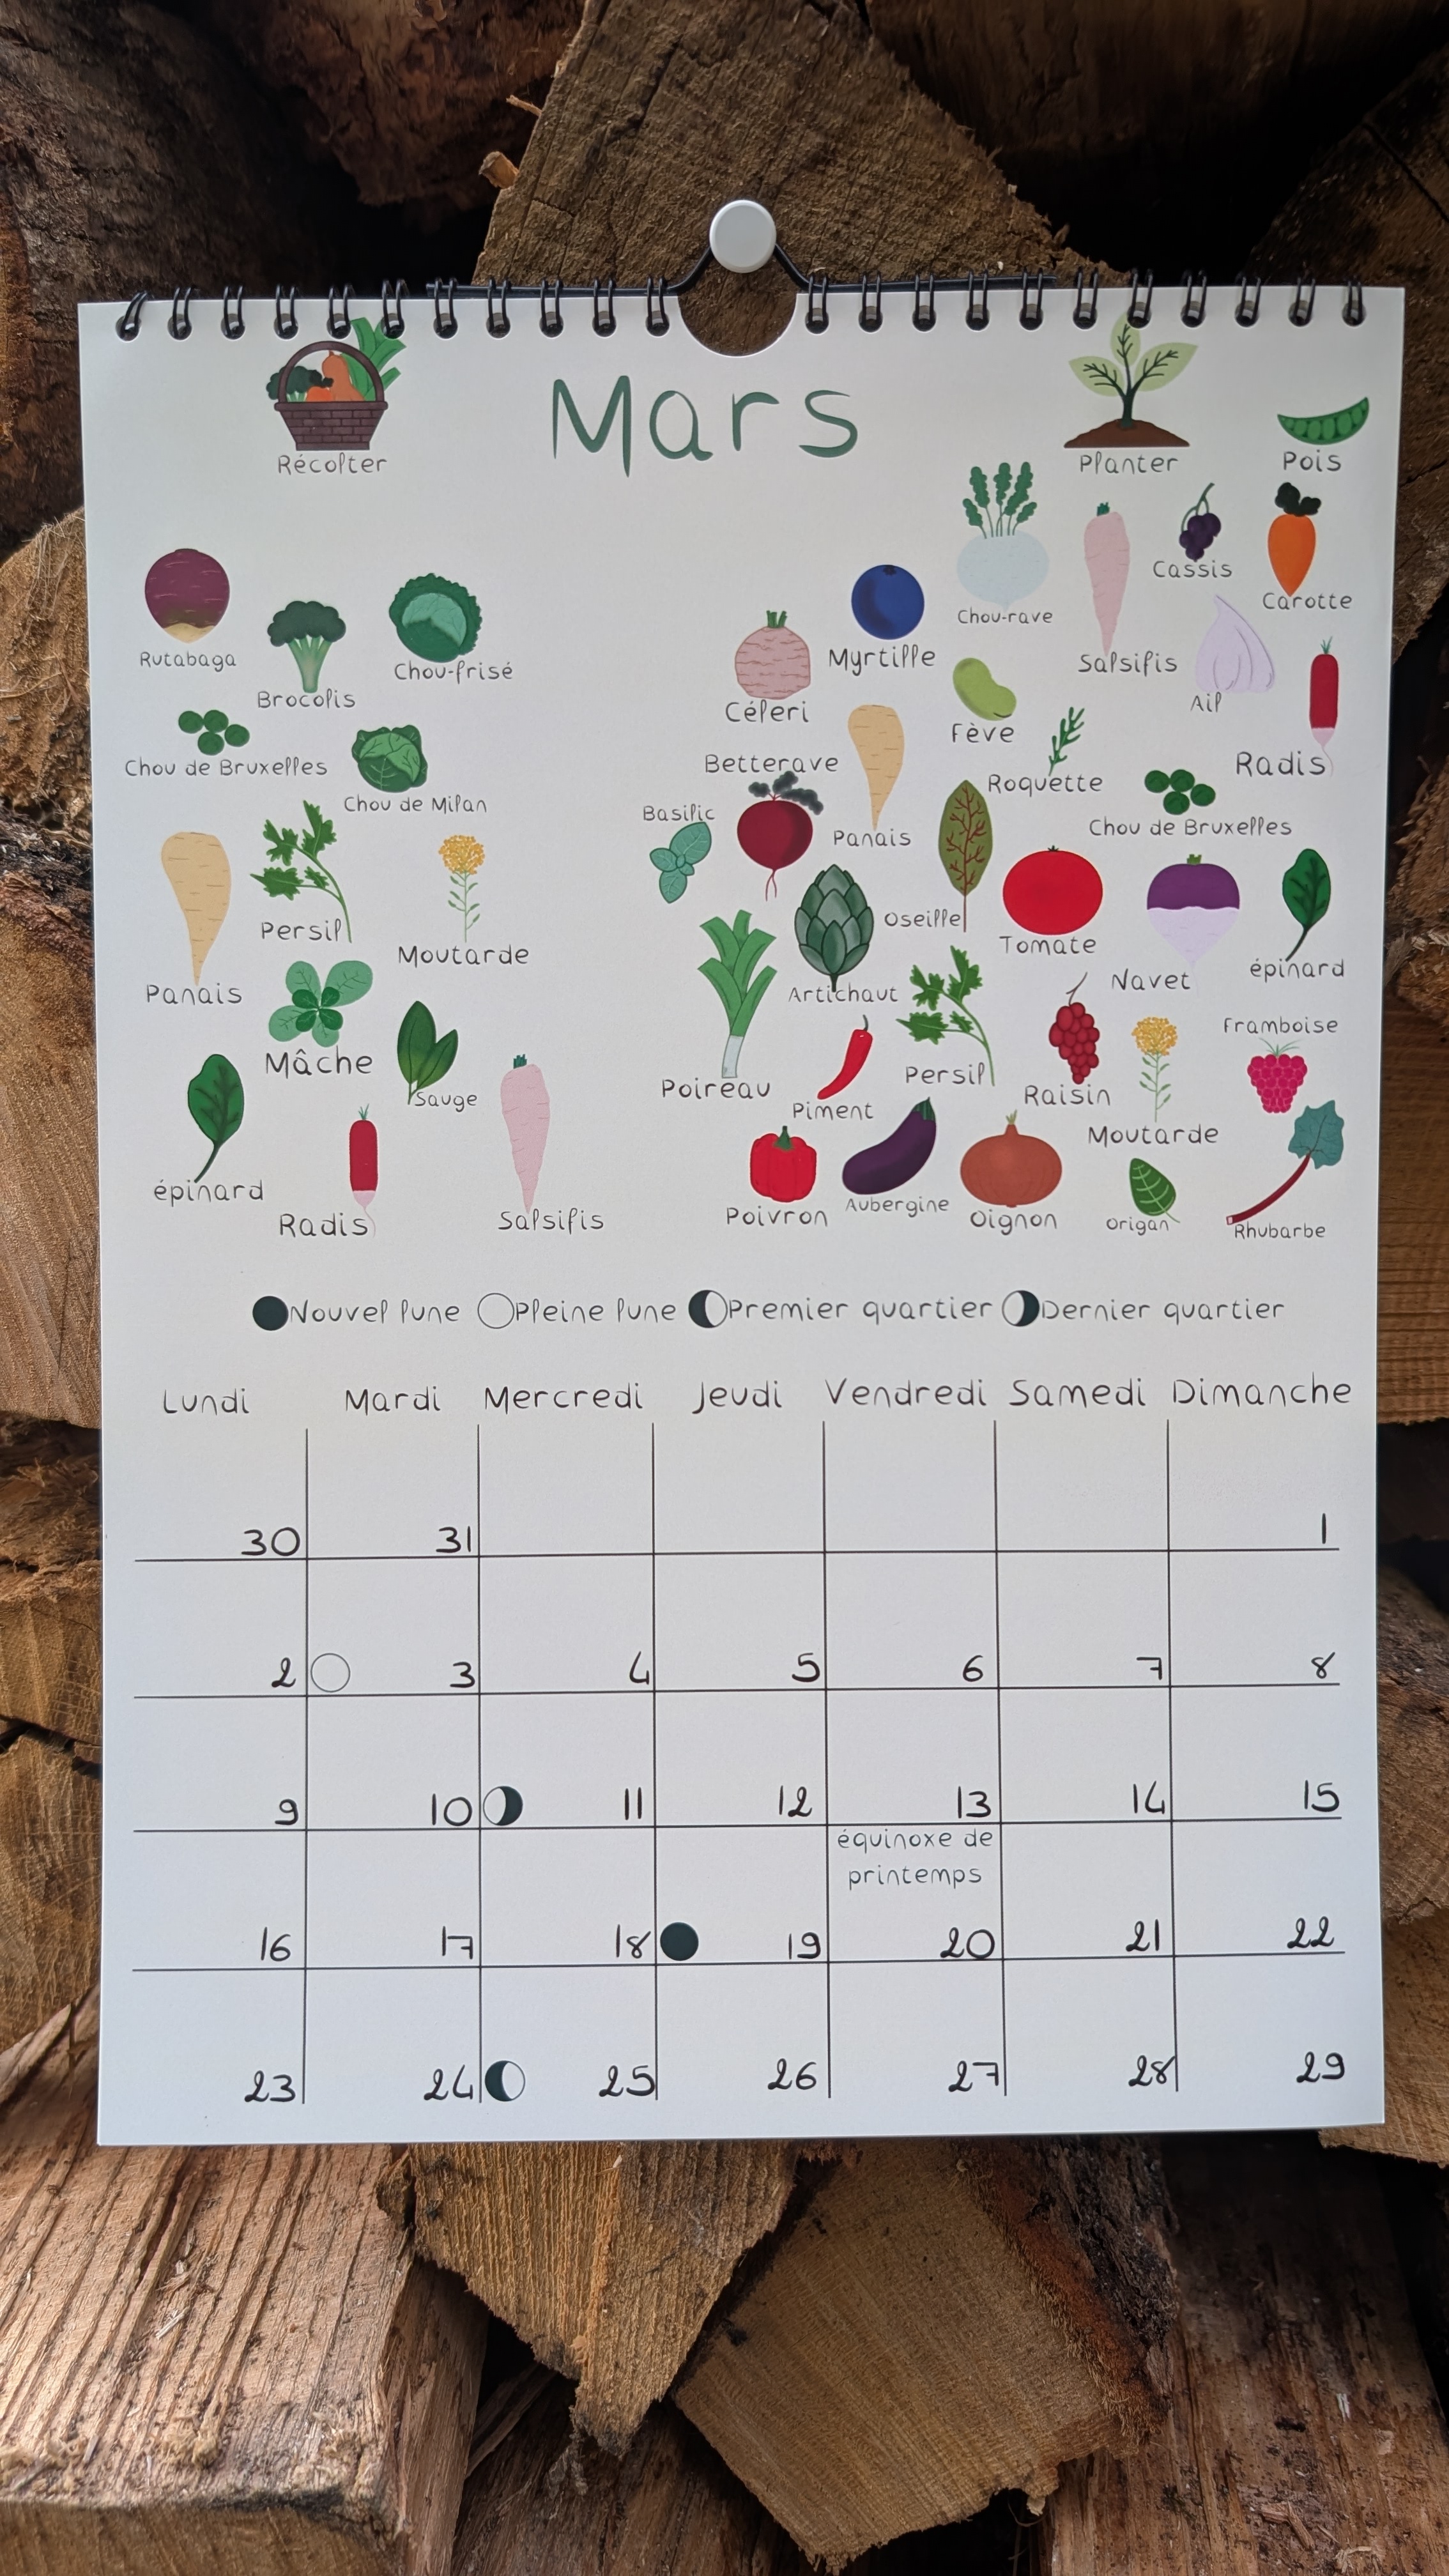 Mars
Récolter
Rutabaga
Brocolis
Chou-frisé
Chou de Bruxelles
Chou de Milan
Panais
Persil
Moutarde
Mâche
Sauge
épinard
Radis
Salsifis
Planter
Pois
Cassis
Carotte
Chou-rave
Myrtille
Salsifis
Céleri
Fève
Ail
Radis
Betterave
Roquette
Basilic
Panais
Chou de Bruxelles
Oseille
Tomate
Navet
épinard
Artichaut
Poireau
Piment
Persil
Raisin
Moutarde
Framboise
Poivron
Aubergine
Oignon
Origan
Rhubarbe
Nouvel lune Pleine lune Premier quartier Dernier quartier
Lundi Mardi Mercredi Jeudi Vendredi Samedi Dimanche
30 31 1
2 3 4 5 6 7 8
9 10 11 12 13 14 15
équinoxe de
printemps
16 17 18 19 20 21 22
23 24 25 26 27 28 29